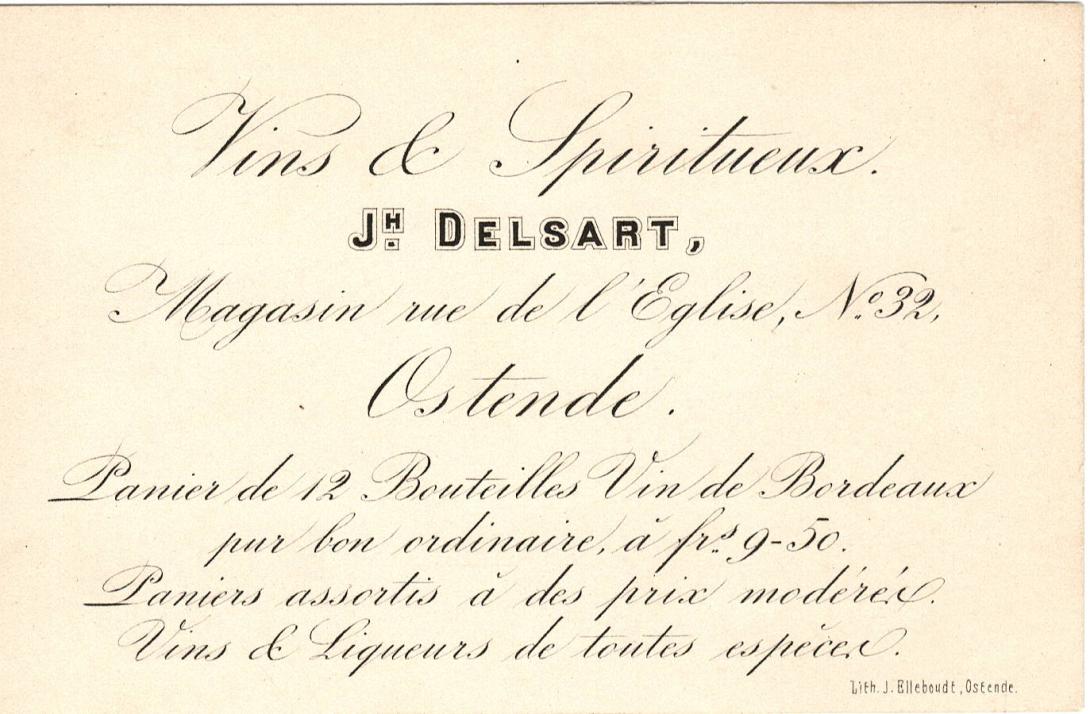 Vins & Spiritueux.
JH. DELSART,
Magasin rue de l'Eglise, No. 32,
Ostende.
Panier de 12 Bouteilles Vin de Bordeaux
pur bon ordinaire, à frs. 9-50.
Paniers assortis à des prix modérés.
Vins & Liqueurs de toutes espèces.
Lith. J. Elleboudt, Ostende.